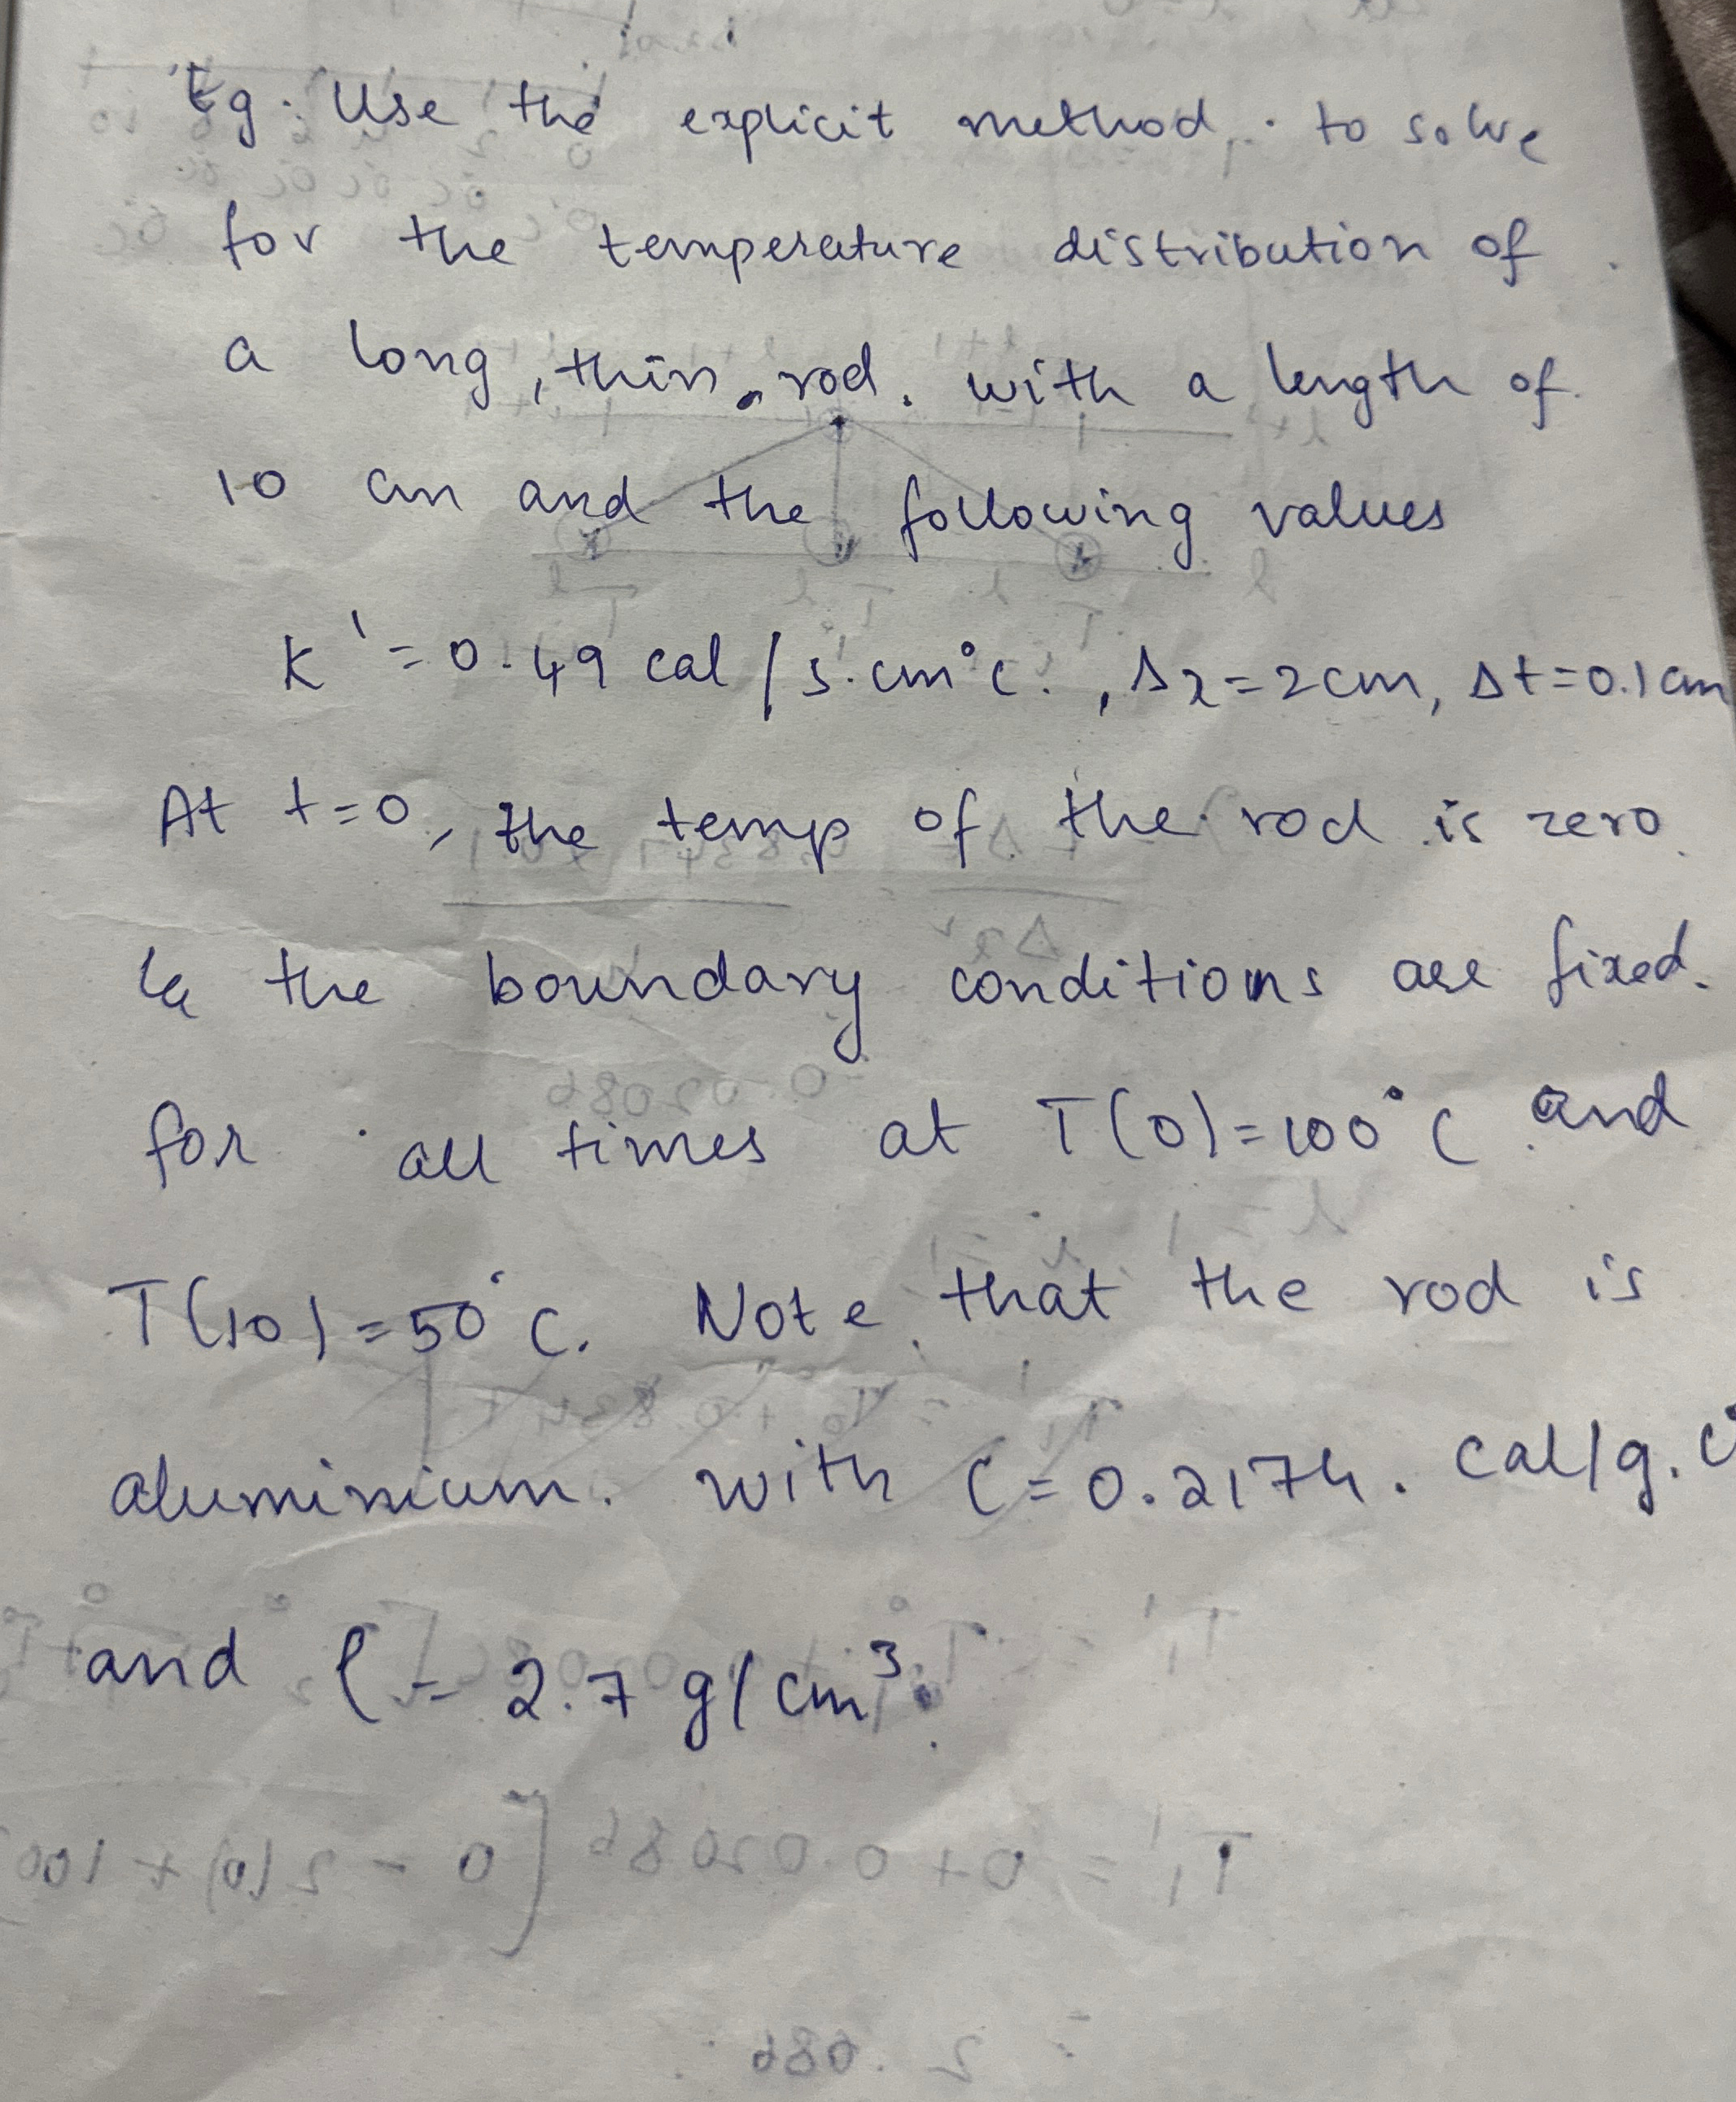 Eg. Use the explicit method. to solve
for the temperature distribution of
a long, thin rod. with a length of
10 cm and the following values
K' = 0.49 cal / s.cm°C. , Δx = 2cm, Δt = 0.1 cm
At t=0, the temp of the rod is zero
& the boundary conditions are fixed.
for all times at T(0) = 100°C and
T(10) = 50°C. Note that the rod is
aluminium. with C = 0.2174. cal/g.C°
and ρ = 2.7 g/cm³.